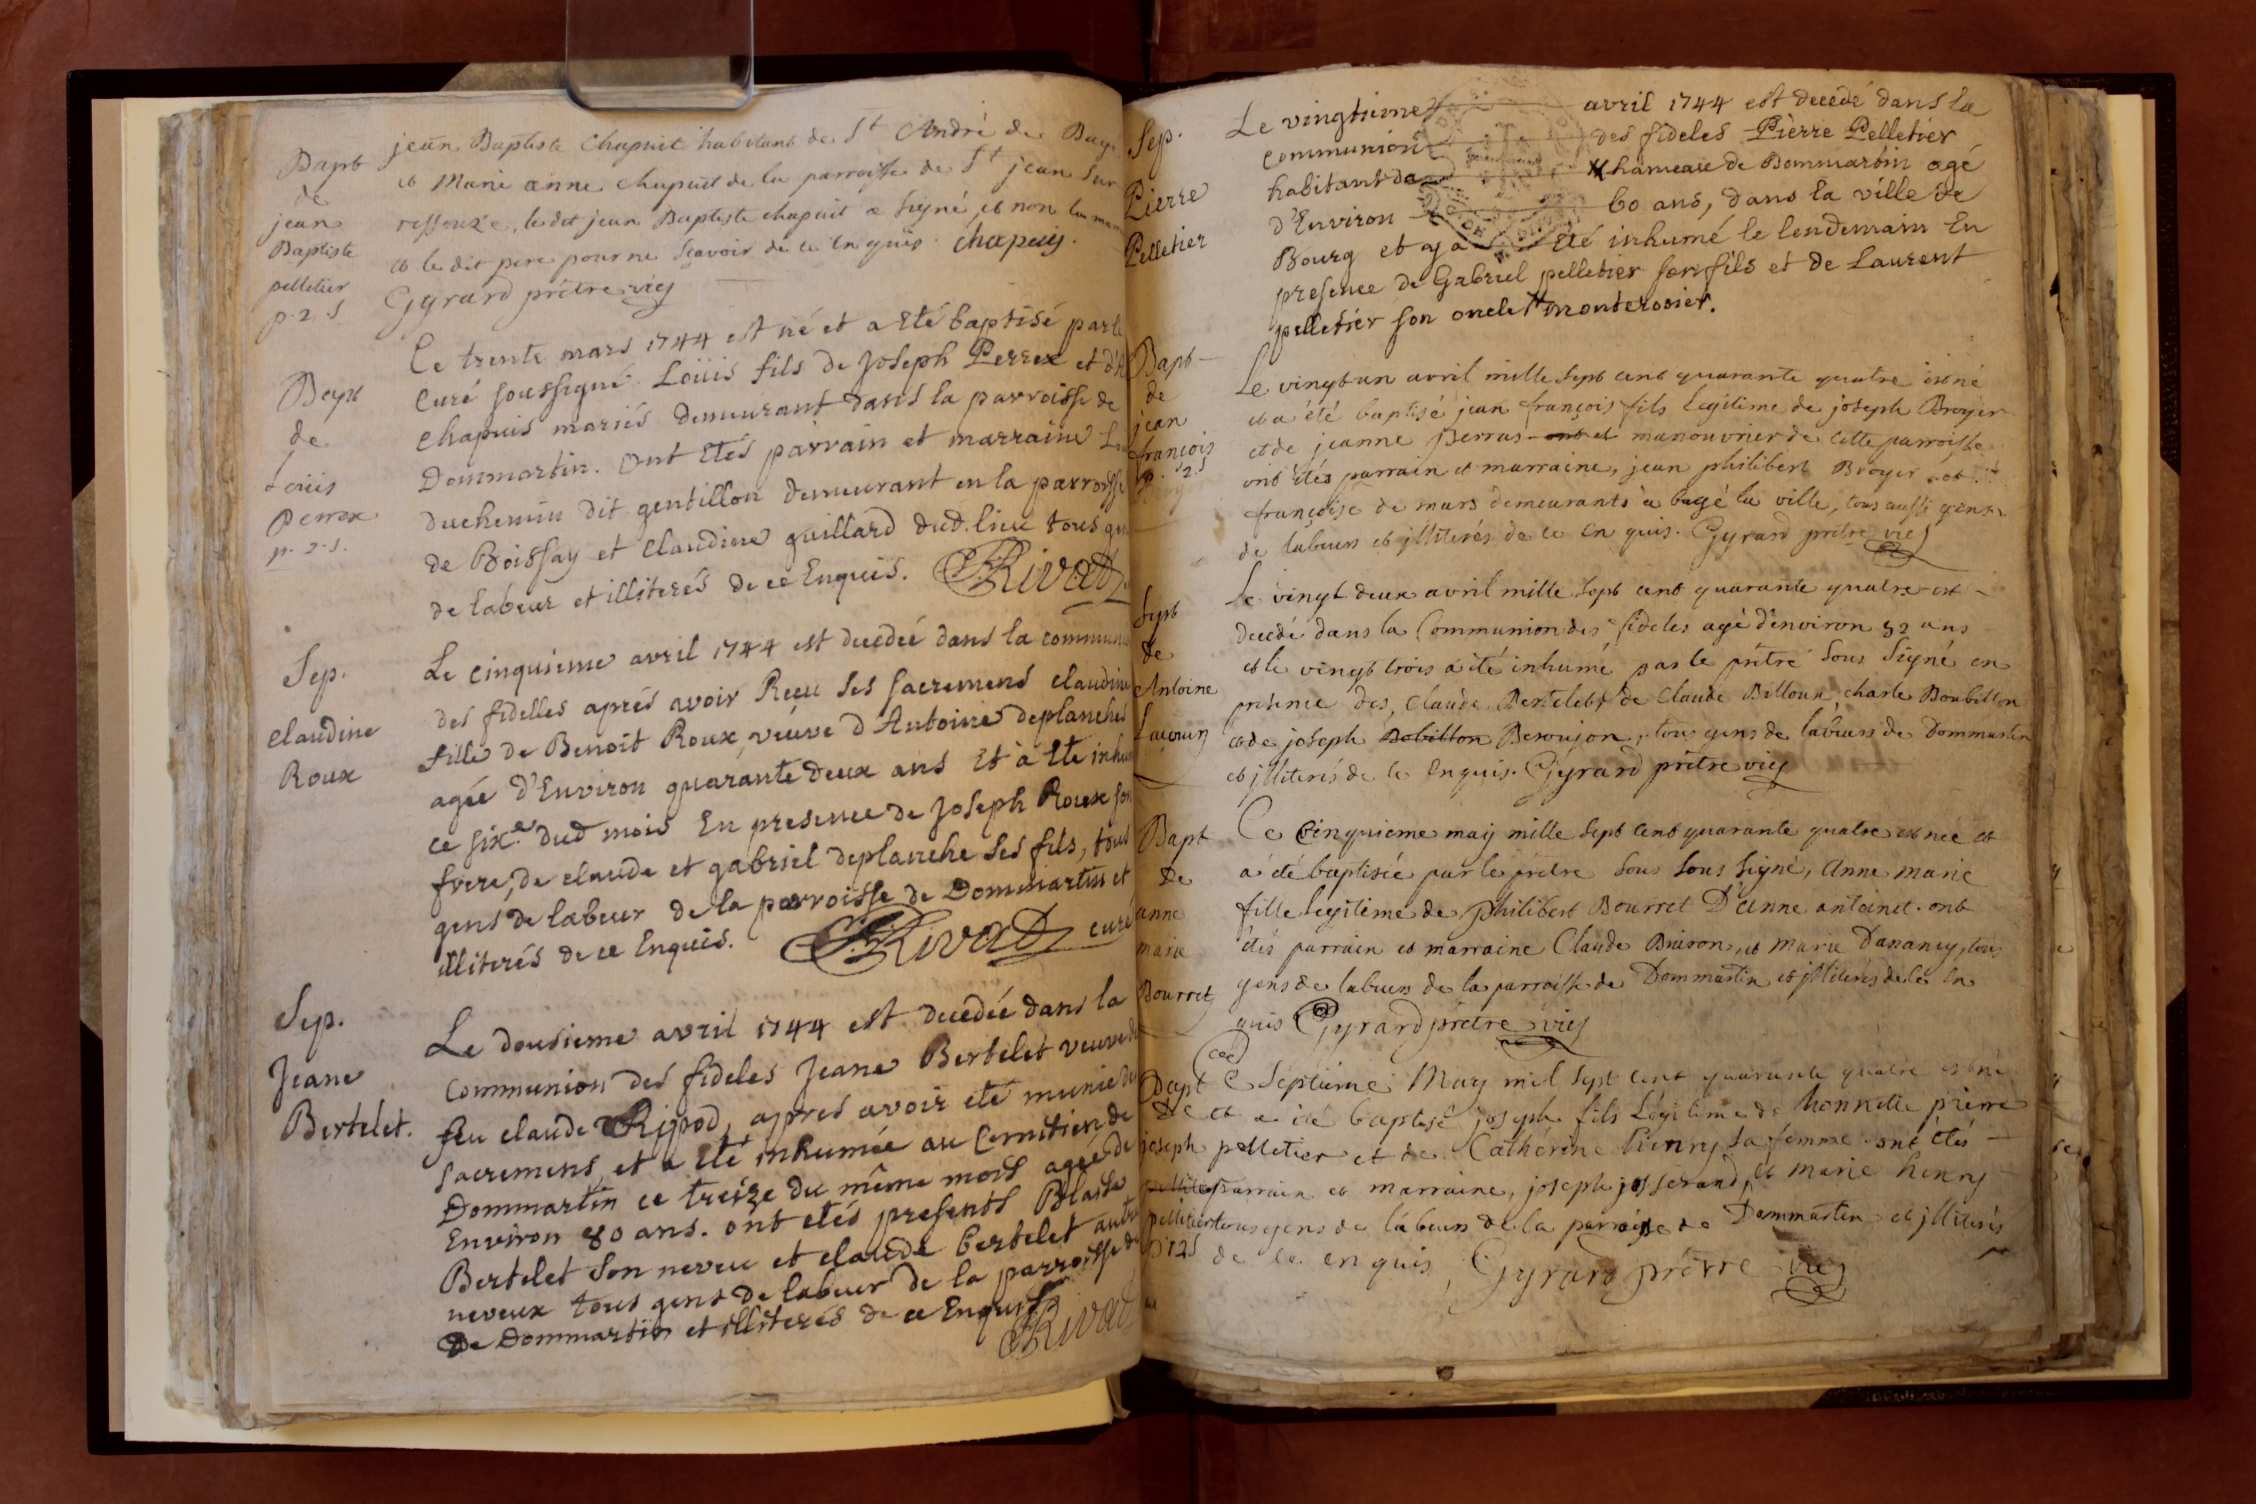 Bapt
de
jean
Baptiste
pelletier
p. 2. s
jean Baptiste Chapuit habitant de St André de Bagé
et Marie anne chapuit de la parroisse de St jean sur
ressouze, le dit jean Baptiste chapuit a signé, et non la
et le dit pere pour ne sçavoir de ce enquis. chapuis.
Gyrard prêtre vic
Bapt
de
Louis
Perrex
p. 2. s.
Ce trente mars 1744 est né et a eté baptisé par le
Curé soussigné Loüis fils de Joseph Perrex et
chapuis mariés demeurant dans la parroisse de
Dommartin. Ont etés parrain et marraine
duchemin dit gentillon demeurant en la parroisse
de Boissay et claudine gaillard dud. lieu tous
de labeur et illiterés de ce Enquis. Rivat
Sep.
claudine
Roux
Le cinquieme avril 1744 est decedée dans la
des fidelles aprés avoir Reçu ses sacremens claudine
fille de Benoit Roux, veuve d'Antoine deplanches
agée d'Environ quarante deux ans Et à Eté
ce sixe dud mois En presence de Joseph Roux son
frere, de claude et gabriel deplanche ses fils, tous
gens de labeur de la parroisse de Dommartin et
illiterés de ce Enquis. Rivat curé
Sep.
Jeane
Bertelet.
Le dousieme avril 1744 est decedée dans la
communion des fideles Jeane Bertelet veuve de
feu claude Ripod, apres avoir eté munie des
sacremens, et a eté inhumée au Cemitiere de
Dommartin ce treize du même mois agée de
Environ 80 ans. ont etés presents Blaise
Bertelet son neveu et claude bertelet autre
neveux tous gens de labeur de la parroisse de
De Dommartin et illiterés de ce Enquis Rivat
Sep.
Pierre
Pelletier
Le vingtieme avril 1744 est decedé dans la
communion des fideles Pierre Pelletier
habitant de hameau de Dommartin agé
d'Environ 60 ans, dans la ville de
Bourg et y a Eté inhumé le lendemain En
presence de Gabriel pelletier son fils et de Laurent
pelletier son oncle monterosier.
Bapt
de
jean
françois
p. 2. s
Le vingt un avril mille sept cent quarante quatre est né
et a été baptisé jean françois fils legitime de joseph Broyer
et de jeanne Perras manouvrier de cette parroisse
ont étés parrain et marraine, jean philibert Broyer et
françoise de murs demeurants à bagé la ville, tous aussi gens
de labeurs et jlliterés de ce enquis. Gyrard prêtre vic
Sept
de
Antoine
Le vingt deux avril mille sept cent quarante quatre est
decedé dans la Communion des fideles agé d'environ 32 ans
et le vingt trois a été inhumé par le prêtre sous signé en
presence des, Claude Bertelet de Claude Billoux, charle Boubillon
et de joseph Bobillon Beroujon, tous gens de labeurs de Dommartin
et jlliterés de ce Enquis. Gyrard prêtre vic
Bapt
De
anne
marie
Bourret
Ce Cinquieme may mille sept cent quarante quatre est née et
a été baptisée par le prêtre sous sous signé, Anne Marie
fille legitime de philibert Bourret D'Anne antoinet. ont
étés parrain et marraine Claude Buiron, et Marie Dananey, tous
gens de labeurs de la parroisse de Dommartin et jlliterés de ce en
quis Gyrard prêtre vic
Bapt
De
joseph
pelletier
pelletier
P 12 s
Ce Septieme May mil sept cent quarante quatre est né
et a été baptisé joseph fils Légitime de honnette pierre
pelletier et de Catherine henry sa femme ont étés
parrain et marraine, joseph josserand, et marie henry
tous gens de labeurs de la parroisse de Dommartin et jlliterés
de ce enquis, Gyrard prêtre vic